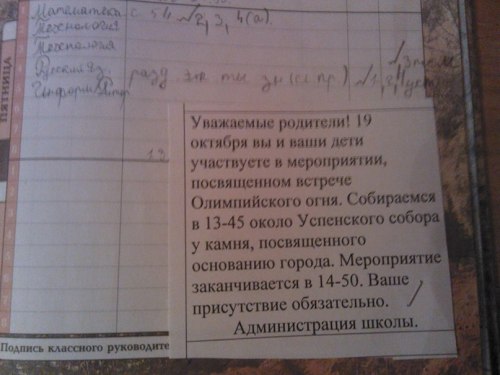 Математика с. 54 √2, 3, 4(а)
Технология
Технология
Русский яз.
ПЯТНИЦА
Уважаемые родители! 19
октября вы и ваши дети
участвуете в мероприятии,
посвященном встрече
Олимпийского огня. Собираемся
в 13-45 около Успенского собора
у камня, посвященного
основанию города. Мероприятие
заканчивается в 14-50. Ваше
присутствие обязательно.
Администрация школы.
Подпись классного руководите